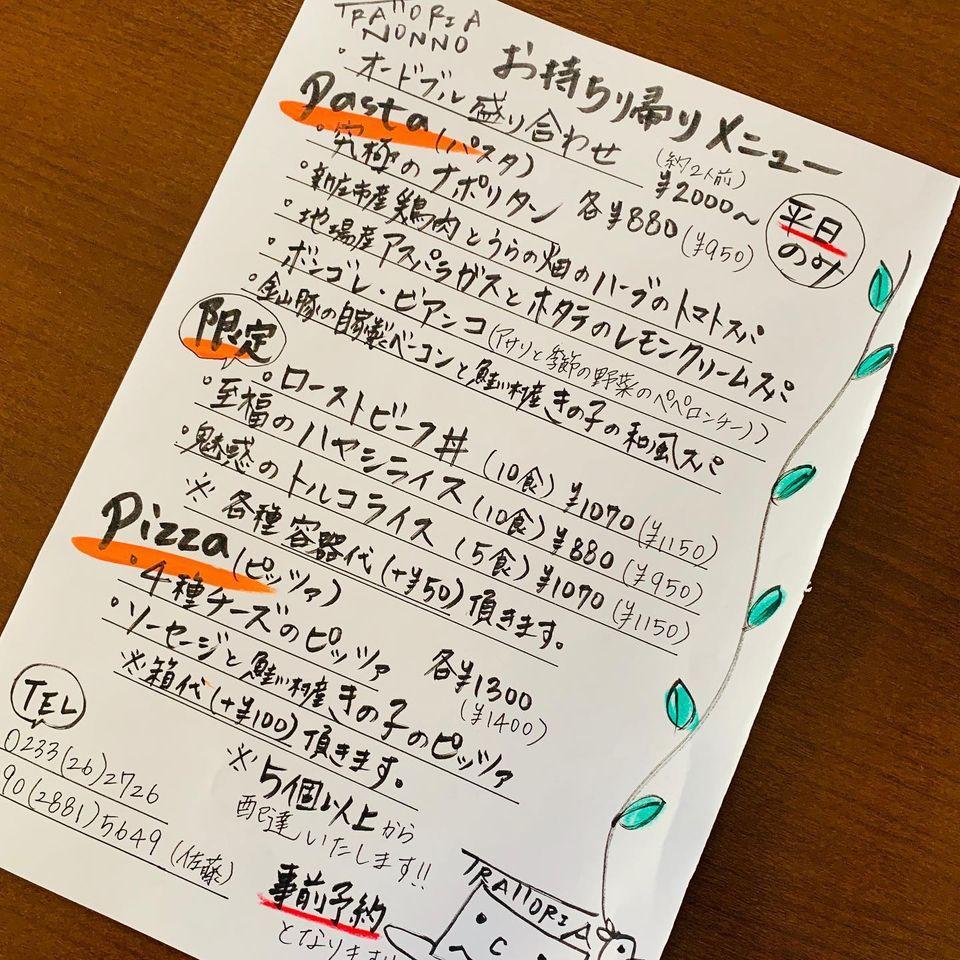 TRATTORIA
NONNO
お持ち帰りメニュー
・オードブル盛り合わせ (約2人前) ¥2000〜
平日のみ
Pasta (パスタ) 各¥880 (¥950)
・究極のナポリタン
・新庄市産鶏肉とうらの畑のハーブのトマトスパ
・地場産アスパラガスとホタテのレモンクリームスパ
・ボンゴレ・ビアンコ(アサリと季節の野菜のペペロンチーノ)
・金山豚の自家製ベーコンと鮭川村産きの子の和風スパ
限定
・ローストビーフ丼 (10食) ¥1070 (¥1150)
・至福のハヤシライス (10食) ¥880 (¥950)
・魅惑のトルコライス (5食) ¥1070 (¥1150)
※各種容器代(+¥50)頂きます。
Pizza (ピッツァ) 各¥1300 (¥1400)
・4種チーズのピッツァ
・ソーセージと鮭川村産きの子のピッツァ
※箱代(+¥100)頂きます。
※5個以上から
配達いたします!!
TEL
0233(26)2726
90(2881)5649 (佐藤)
事前予約
となります
TRATTORIA